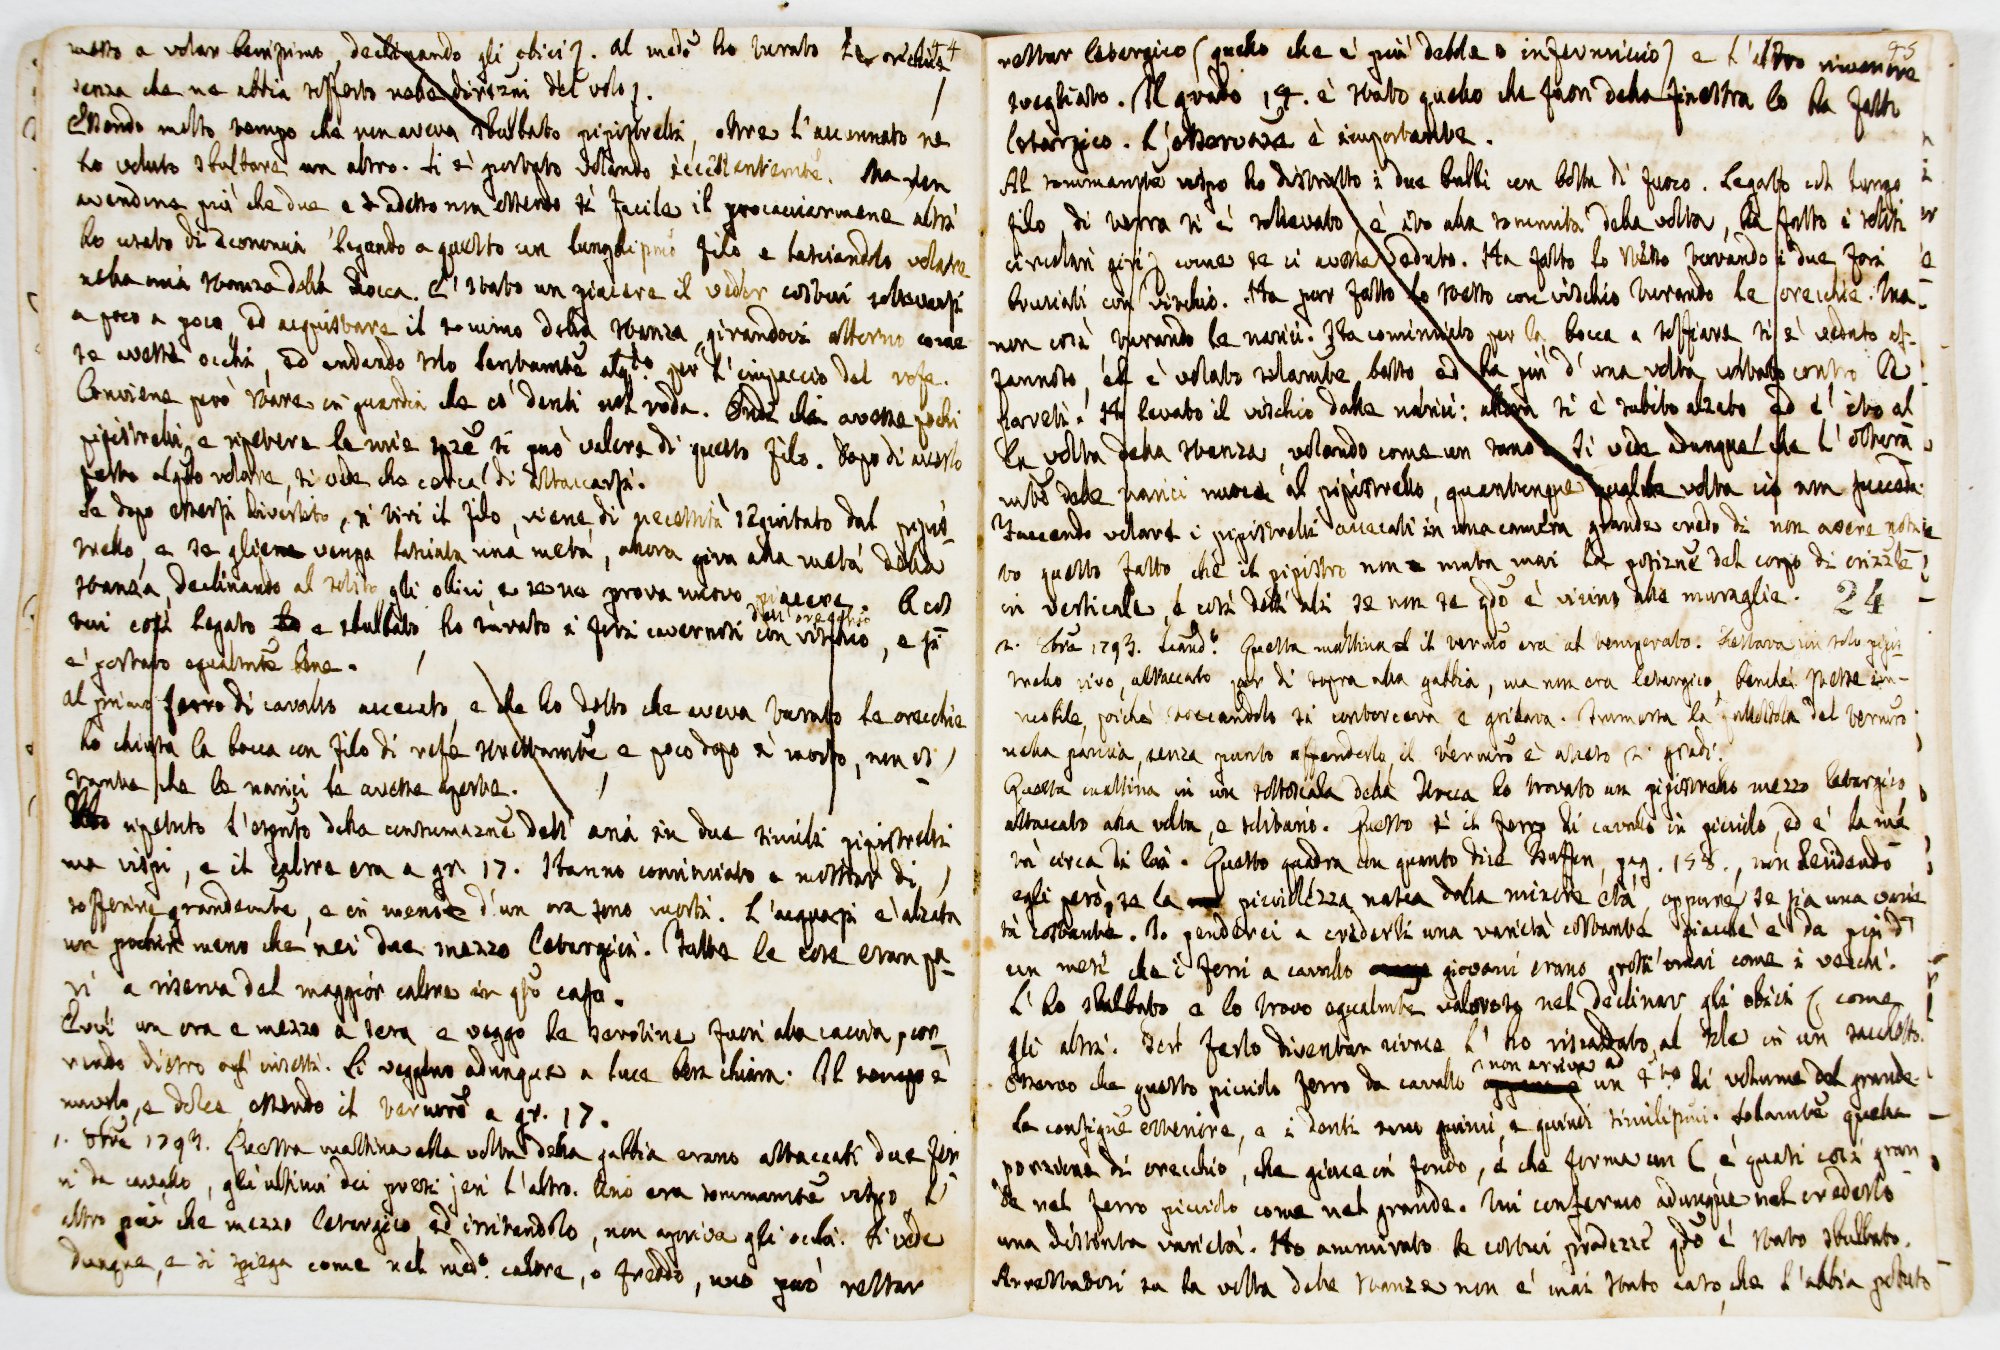 messo a volar benissimo, declinando gli obici). Al medo ho turato le orecchie
senza che ne abbia sofferto nelle direzni del volo).
Essendo molto tempo che non aveva sbulbato pipistrelli, oltre l'accennato ne
ho voluto sbulbare un altro. Si è portato volando eccellentemte. Ma non
avendone più che due e adesso non essendo sì facile il procacciarmene altri
ho usato di economia legando a questo un lunghissimo filo e lasciandolo volare
nella mia stanza della Rocca. E' stato un piacere il veder costui sollevarsi
a poco a poco, ed acquistare il sommo della stanza, girandovi attorno come
se avesse occhi, ed andando solo lentamte alqto per l'impaccio del refe.
Conviene però stare in guardia che co' denti nol roda. Onde chi avesse pochi
pipistrelli, e ripetere le mie spze si può valere di questo filo. Dopo di averlo
fatto alqto volare, si vede che cerca di distaccarsi.
Se dopo essersi divertito, si tiri il filo, viene di necessità seguitato dal pipis-
trello, e se gliene venga lasciata una metà, allora gira alla metà della
stanza, declinando al solito gli obici, e se ne prova nuovo piacere. A cos
tui così legato e sbulbato ho turato i fori cavernosi dell'orecchio con vischio, e si
è portato egualmte bene.
Al primo ferro di cavallo accecato, e che ho detto che aveva turato le orecchie
ho chiusa la bocca con filo di refe strettamte, e poco dopo è morto, non os
tante che le narici le avesse aperte.
Ho ripetuto l'espto della consumazne dell'aria in due simili pipistrelli
ma vispi, e il calore era a gr. 17. Hanno cominciato a mostrar di
soffrire grandemte, e in meno d'un ora sono morti. L'acqua si è alzata
un pochin meno che nei due mezzo letargici. Tutte le cose eran pa-
ri a riserva del maggior calore in qto caso.
Evvi un ora e mezzo a sera e veggo le serotine fuori alla caccia, cor-
rendo dietro agl'insetti. Ci veggono adunque a luce ben chiara. Il tempo è
nuvolo, e dolce, essendo il termro a gr. 17.
1. 8bre 1793. Questa mattina alla volta della gabbia erano attaccati due fer-
ri da cavallo, gli ultimi dei presi jeri l'altro. Uno era sommamte vispo l'
altro più che mezzo letargico, ed irritandolo, non apriva gli occhi. Si vede
dunque, e si spiega come nel medo calore, o freddo, uno può restar
95
restar letargico (quello che è più debole o infermiccio) e l'altro rimanere
svegliato. Il grado 14. è stato quello che fuori della finestra lo ha fatto
letargico. L'osservaze è importante.
Al sommamte vispo ho distrutto i due bulbi con botta di fuoco. Legato col lungo
filo, di terra si è sollevato, è ito alla sommità della volta, ha fatto i soliti
circolari giri, come se ci avesse veduto. Ha fatto lo stesso turando i due fori
bruciati con vischio. Ha pur fatto lo stesso con vischio turando le orecchie. Ma
non così turando le narici. Ha cominciato per la bocca a soffiare, si è veduto af-
fannoso, ed è volato solamte basso, ed ha più d'una volta urtato contro le
pareti. Ho levato il vischio dalle narici: allora si è subito alzato ed è ito al
la volta della stanza, volando come un sano. Si vede adunque che l'ottura
mto delle narici nuoce al pipistrello, quantunque qualche volta ciò non succeda.
Facendo volare i pipistrelli accecati in una camera grande credo di non avere nota
to questo fatto, che il pipistro non muta mai la posizne del corpo di orizzle
in verticale, e così dell'ali se non se qdo è vicino alle muraglie. 24
2. 8bre 1793. Scando. Questa mattina il termro era al temperato. Restava un solo pipis-
trello vivo, attaccato pur di sopra alla gabbia, ma non era letargico, benchè stesse im-
mobile, poichè toccandolo si contorceva e gridava. Immersa la pallottola del termro
nella pancia, senza punto offenderlo, il termro è alzato gradi.
Questa mattina in un sottoscala della Rocca ho trovato un pipistrello mezzo letargico
attaccato alla volta, e solitario. Questo è il ferro di cavallo in piccolo, ed è la me
tà circa di lui. Questo quadra con quanto dice Buffon, pag. 158., non decidendo
egli però, se la piccolezza nasca dalla minore età, oppure se sia una varie
tà costante. Io penderei a crederli una varietà costante giacchè è da più d'
un mese che i ferri a cavallo giovani erano grossi omai come i vecchi.
L'ho sbulbato e lo trovo egualmte valoroso nel declinar gli obici (come
gli altri. Per farlo diventar vivace l'ho riscaldato al sole in un sacchetto.
Osservo che questo piccolo ferro da cavallo non arriva ad un 4to di volume del grande.
La configne esteriore, e i denti sono quinci, e quindi similissimi. Solamte quella
porzione di orecchio, che giace in fondo, e che forma un C è quasi così gran
de nel ferro piccolo come nel grande. Mi confermo adunque nel crederlo
una distinta varietà. Ho ammirato le costui prodezze qdo è stato sbulbato.
Arrestatosi su la volta delle stanze non è mai stato caso, che l'abbia potuto